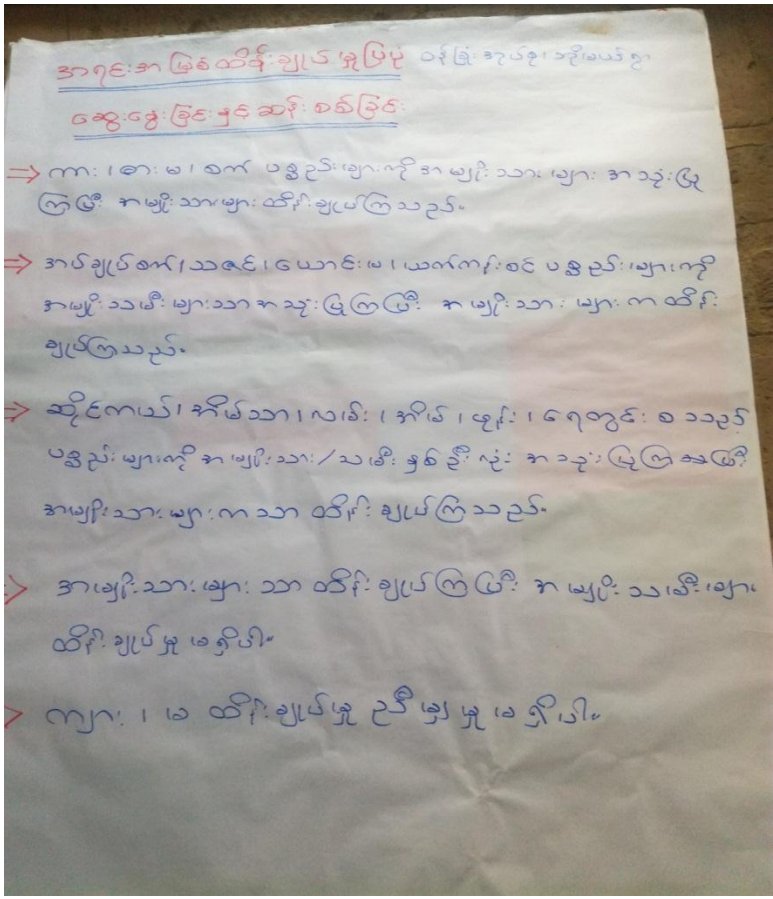 အရင်းအမြစ်ထိန်းချုပ်မှုပြပုံ
ဆွေးနွေးခြင်းနှင့်ဆန်းစစ်ခြင်း
⇒ ကား၊ ဓားမ၊ စက် ပစ္စည်းများကို အမျိုးသားများ အသုံးပြု
ကြပြီး အမျိုးသားများထိန်းချုပ်ကြသည်။
⇒ အပ်ချုပ်စက်၊ သဇင်၊ ယောင်းမ၊ ယက်ကန်းစင် ပစ္စည်းများကို
အမျိုးသမီးများသာအသုံးပြုကြပြီး အမျိုးသားများက ထိန်း
ချုပ်ကြသည်။
⇒ ဆိုင်ကယ်၊ အိမ်သာ၊ လမ်း၊ အိမ်၊ ဖုန်း၊ ရေတွင်း စသည့်
ပစ္စည်းများကို အမျိုးသား/သမီး နှစ်ဦးလုံး အသုံးပြုကြပြီး
အမျိုးသားများကသာ ထိန်းချုပ်ကြသည်။
⇒ အမျိုးသားများသာ ထိန်းချုပ်ကြပြီး အမျိုးသမီးများ
ထိန်းချုပ်မှု မရှိပါ။
⇒ ကျား၊ မ ထိန်းချုပ်မှု ညီမျှမှု မရှိပါ။